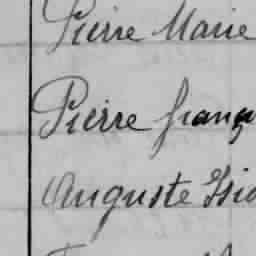 Pierre Marie
Pierre franç
Auguste Isid